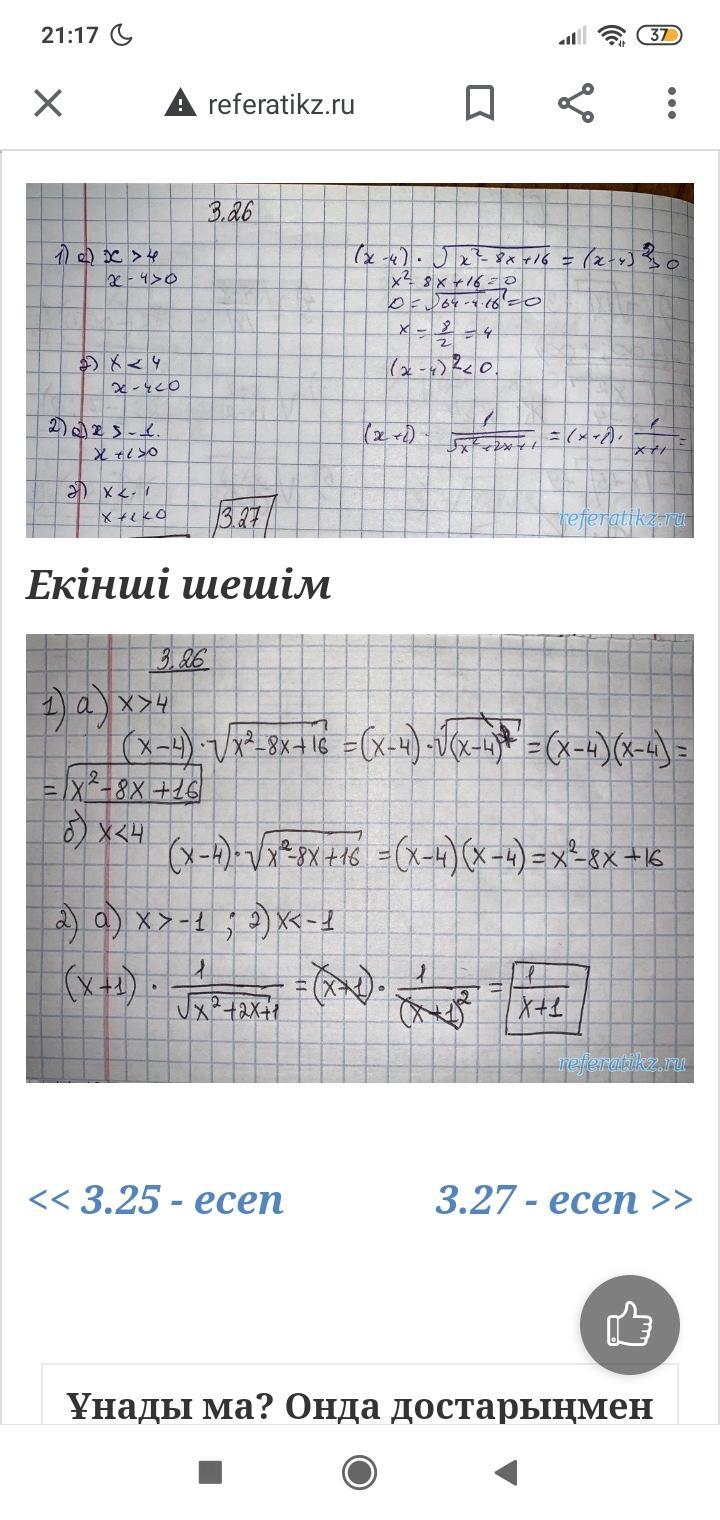 21:17
37
referatikz.ru
3.26
1) а) x > 4
x - 4 > 0
(x - 4) · √x² - 8x + 16 = (x - 4)² > 0
x² - 8x + 16 = 0
D = √64 - 4·16 = 0
x = 8/2 = 4
x < 4
x - 4 < 0
(x - 4)² < 0.
x + 1 > 0
x + 1 < 0
3.27
referatikz.ru
Екінші шешім
3.26
1) а) x > 4
(x - 4) · √x² - 8x + 16 = (x - 4) · √(x - 4)² = (x - 4)(x - 4) =
= x² - 8x + 16
б) x < 4
(x - 4) · √x² - 8x + 16 = (x - 4)(x - 4) = x² - 8x + 16
2) а) x > -1 ; 2) x < -1
(x + 1) · 1/√x² + 2x + 1 = (x + 1) · 1/(x + 1)² = 1/x + 1
referatikz.ru
<< 3.25 - есеп
3.27 - есеп >>
Ұнады ма? Онда достарыңмен